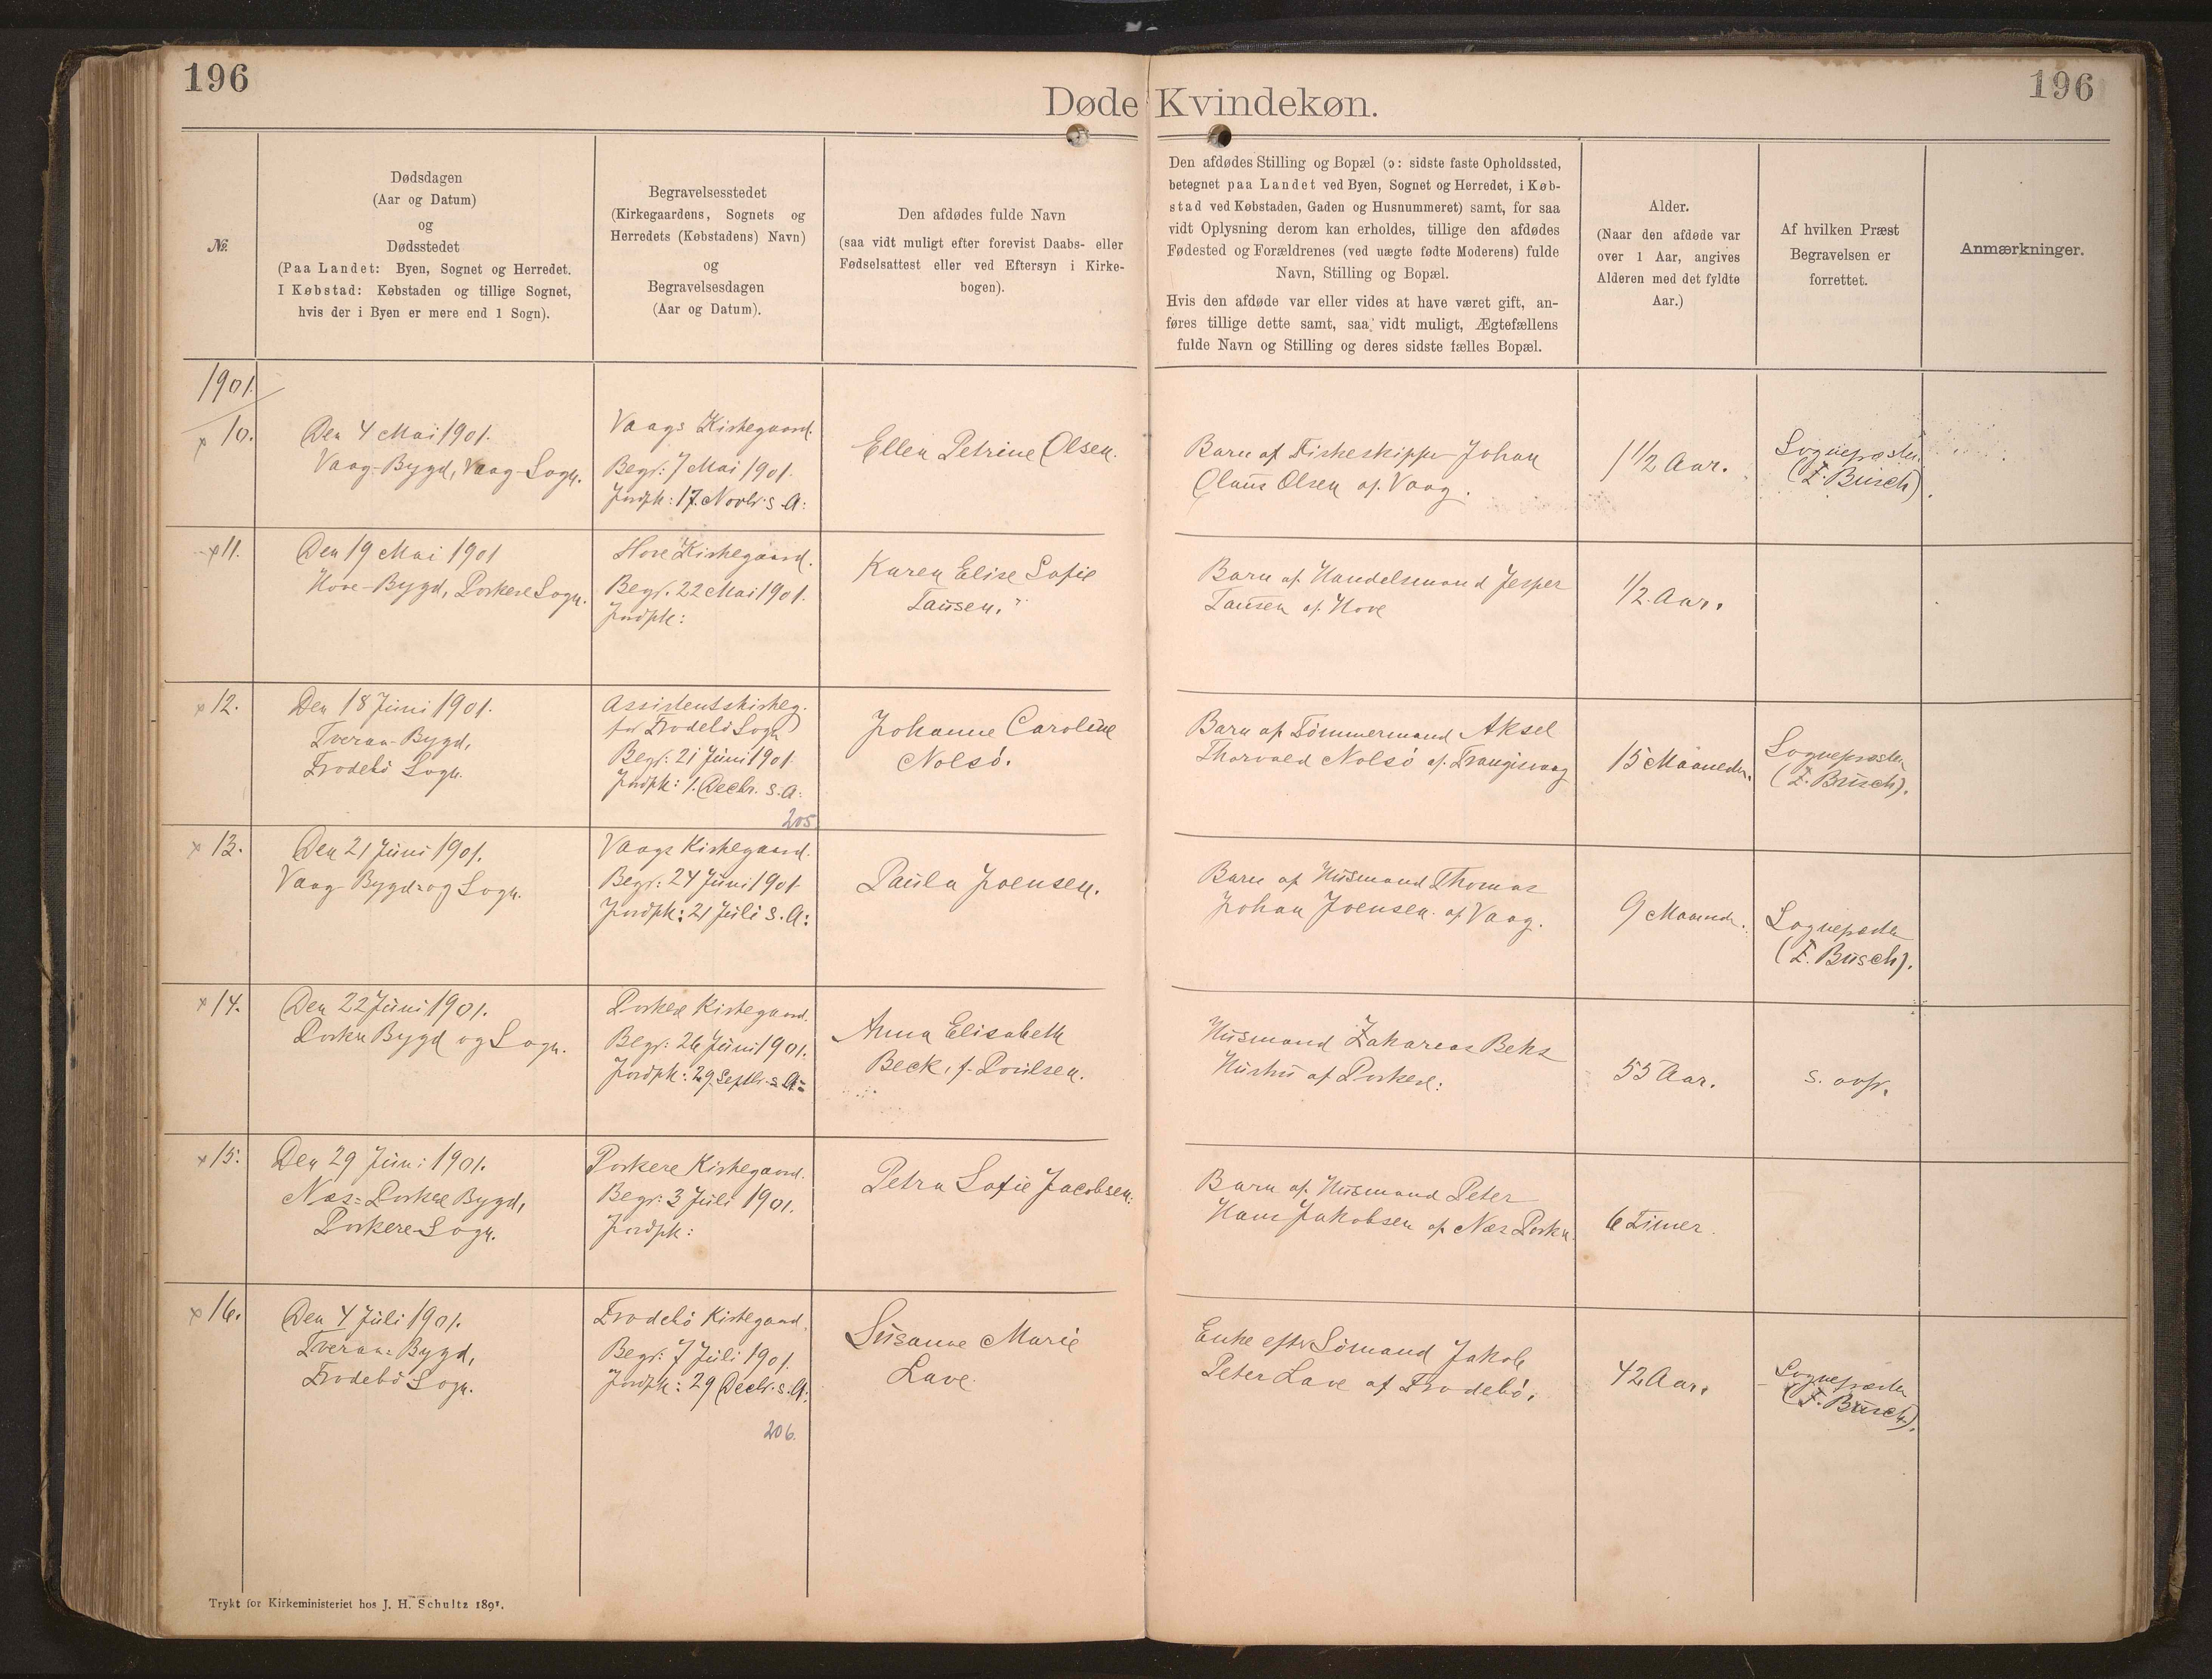 196
196
Døde Kvindekøn.
№.
Dødsdagen
(Aar og Datum)
og
Dødsstedet
(Paa Landet: Byen, Sognet og Herredet.
I Købstad: Købstaden og tillige Sognet,
hvis der i Byen er mere end 1 Sogn).
Begravelsesstedet
(Kirkegaardens, Sognets og
Herredets (Købstadens) Navn)
og
Begravelsesdagen
(Aar og Datum).
Den afdødes fulde Navn
(saa vidt muligt efter forevist Daabs- eller
Fødselsattest eller ved Eftersyn i Kirke-
bogen).
Den afdødes Stilling og Bopæl (ɔ: sidste faste Opholdssted,
betegnet paa Landet ved Byen, Sognet og Herredet, i Køb-
stad ved Købstaden, Gaden og Husnummeret) samt, for saa
vidt Oplysning derom kan erholdes, tillige den afdødes
Fødested og Forældrenes (ved uægte fødte Moderens) fulde
Navn, Stilling og Bopæl.
Hvis den afdøde var eller vides at have været gift, an-
føres tillige dette samt, saa vidt muligt, Ægtefællens
fulde Navn og Stilling og deres sidste fælles Bopæl.
Alder.
(Naar den afdøde var
over 1 Aar, angives
Alderen med det fyldte
Aar.)
Af hvilken Præst
Begravelsen er
forrettet.
Anmærkninger.
1901.
x 10.
Den 4 Mai 1901.
Vaag-Bygd, Vaag-Sogn.
Vaags Kirkegaard.
Begr: 7 Mai 1901.
Jordpk: 17. Novbr. s. A:
Ellen Petrine Olsen.
Barn af Fiskeskipper Johan
Olaus Olsen af Vaag.
1 1/2 Aar.
Sognepræsten
(F. Busch).
x 11.
Den 19 Mai 1901
Hove-Bygd, Porkere Sogn.
Hove Kirkegaard.
Begr. 22 Mai 1901.
Jordpk:
Karen Elise Sofie
Tausen.
Barn af Handelsmand Jesper
Tausen af Hove
1/2 Aar.
x 12.
Den 18 Juni 1901.
Tveraa-Bygd,
Frodebö Sogn.
Assistentskirkeg.
for Frodebö Sogn
Begr: 21 Juni 1901.
Jordpk: 1. Decbr. s. A:
205
Johanne Caroline
Nolsö.
Barn af Tömmermand Aksel
Thorvald Nolsö af Trangisvaag
15 Maaneder.
Sognepræsten
(F. Busch).
x 13.
Den 21 Juni 1901.
Vaag Bygd= og Sogn.
Vaags Kirkegaard.
Begr: 24 Juni 1901.
Jordpk: 21 Juli s. A:
Paula Joensen.
Barn af Husmand Thomas
Johan Joensen af Vaag.
9 Maaneder.
Sognepræsten
(F. Busch).
x 14.
Den 22 Juni 1901.
Porkere Bygd og Sogn.
Porkere Kirkegaard.
Begr: 26 Juni 1901.
Jordpk: 29. Septbr. s. A:
Anna Elisabeth
Beck, f. Poulsen.
Husmand Zakarias Beks
Hustru af Porkere:
55 Aar.
s. ovfr.
x 15.
Den 29 Juni 1901.
Næs= Porkere Bygd,
Porkere Sogn.
Porkere Kirkegaard.
Begr: 3 Juli 1901.
Jordpk:
Petra Sofie Jacobsen.
Barn af Husmand Peter
Hans Jakobsen af Næs Porkere.
6 Timer.
x 16.
Den 4 Juli 1901.
Tveraa= Bygd,
Frodebö Sogn.
Frodebö Kirkegaard.
Begr: 7 Juli 1901.
Jordpk: 29 Decbr. s. A.
206.
Susanne Marie
Lave.
Enke efter Sömand Jakob
Peter Lave af Frodebö.
42 Aar.
Sognepræsten
(F. Busch).
Trykt for Kirkeministeriet hos J. H. Schultz 1891.